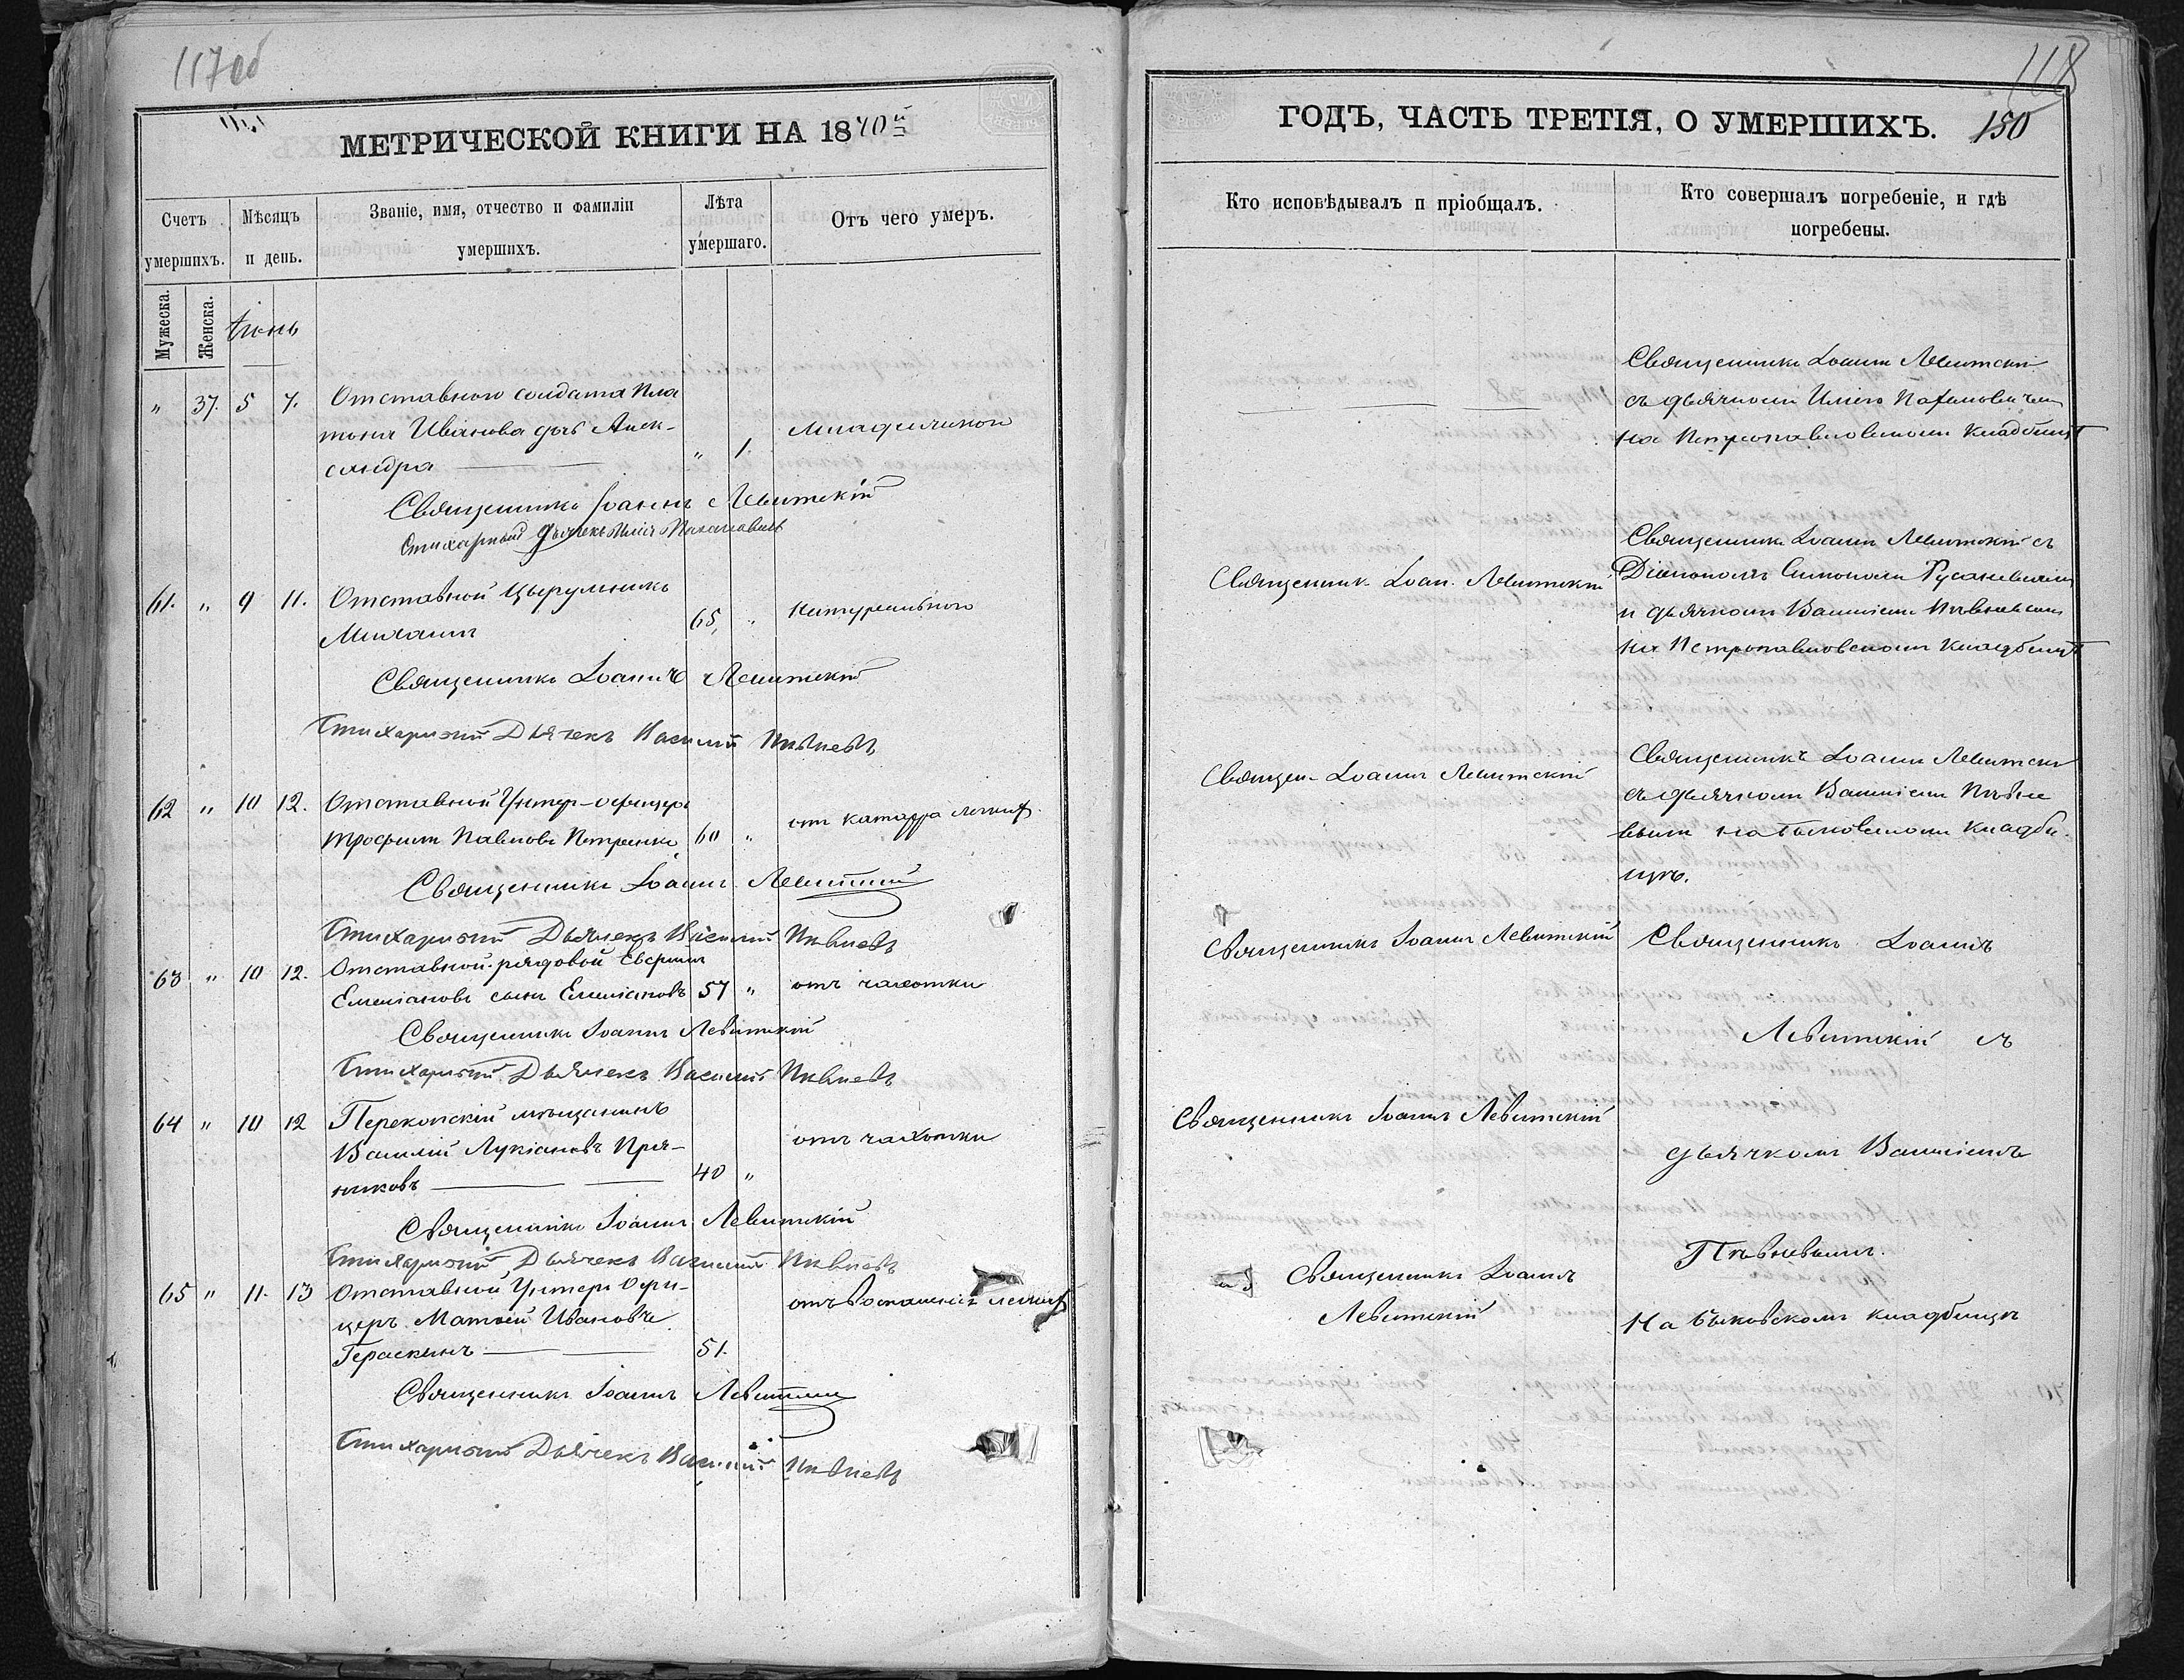 117об
МЕТРИЧЕСКОЙ КНИГИ НА 1870й
Счетъ умершихъ.
Мѣсяцъ и день.
Званіе, имя, отчество и фамиліи умершихъ.
Лѣта умершаго.
Отъ чего умеръ.
Мужеска.
Женска.
Іюнь
" 37. 5 7. Отставного солдата Пла
тона Иванова дочь Алек-
сандра " 1. Младенческой
Священникъ Іоаннъ Левитскій
Стихарный Дьячекъ Илія
61. " 9 11. Отставной Цырульникъ
Михаилъ 65, " натуральною
Священникъ Іоаннъ Левитскій
Стихарный Дьячекъ Василій Пѣвневъ
62 " 10 12. Отставной Унтер-офицеръ
Трофимъ Павловъ Петренко 60 " отъ катарра легкихъ.
Священникъ Іоаннъ Левитскій
Стихарный Дьячекъ Василій Пѣвневъ
63 " 10 12. Отставной рядовой
Емеліановъ сынъ Емеліановъ 57 " отъ чахотки
Священникъ Іоаннъ Левитскій
Стихарный Дьячекъ Василій Пѣвневъ
64 " 10 12 Перекопскій мѣщанинъ
Василій Лукіановъ Пря-
никовъ 40 " отъ чахотки
Священникъ Іоаннъ Левитскій
Стихарный Дьячекъ Василій Пѣвневъ
65 " 11. 13 Отставной Унтеръ Офи-
церъ Матвѣй Ивановъ
Гераскинъ 51. отъ воспаленія легкихъ
Священникъ Іоаннъ Левитскій
Стихарный Дьячекъ Василій Пѣвневъ
118
ГОДЪ, ЧАСТЬ ТРЕТІЯ, О УМЕРШИХЪ. 150
Кто исповѣдывалъ и пріобщалъ.
Кто совершалъ погребеніе, и гдѣ
погребены.
Священникъ Іоаннъ Левитскій
съ дьячкомъ Иліею
на Петропавловскомъ кладбищѣ
Священник Іоан. Левитскій
Священникъ Іоаннъ Левитскій съ
Діакономъ Симономъ
и дьячкомъ Василіемъ Пѣвневымъ
на Петропавловскомъ кладбищѣ
Священ- Іоаннъ Левитскій
Священникъ Іоаннъ Левитскій
съ дьячкомъ Василіемъ Пѣвне
вымъ на Быковскомъ кладби-
щѣ.
Священникъ Іоаннъ Левитскій
Священникъ Іоаннъ
Левитскій съ
Священникъ Іоаннъ Левитскій
дьячкомъ Василіемъ
Пѣвневымъ.
Священникъ Іоаннъ
Левитскій
На Быковскомъ кладбищѣ